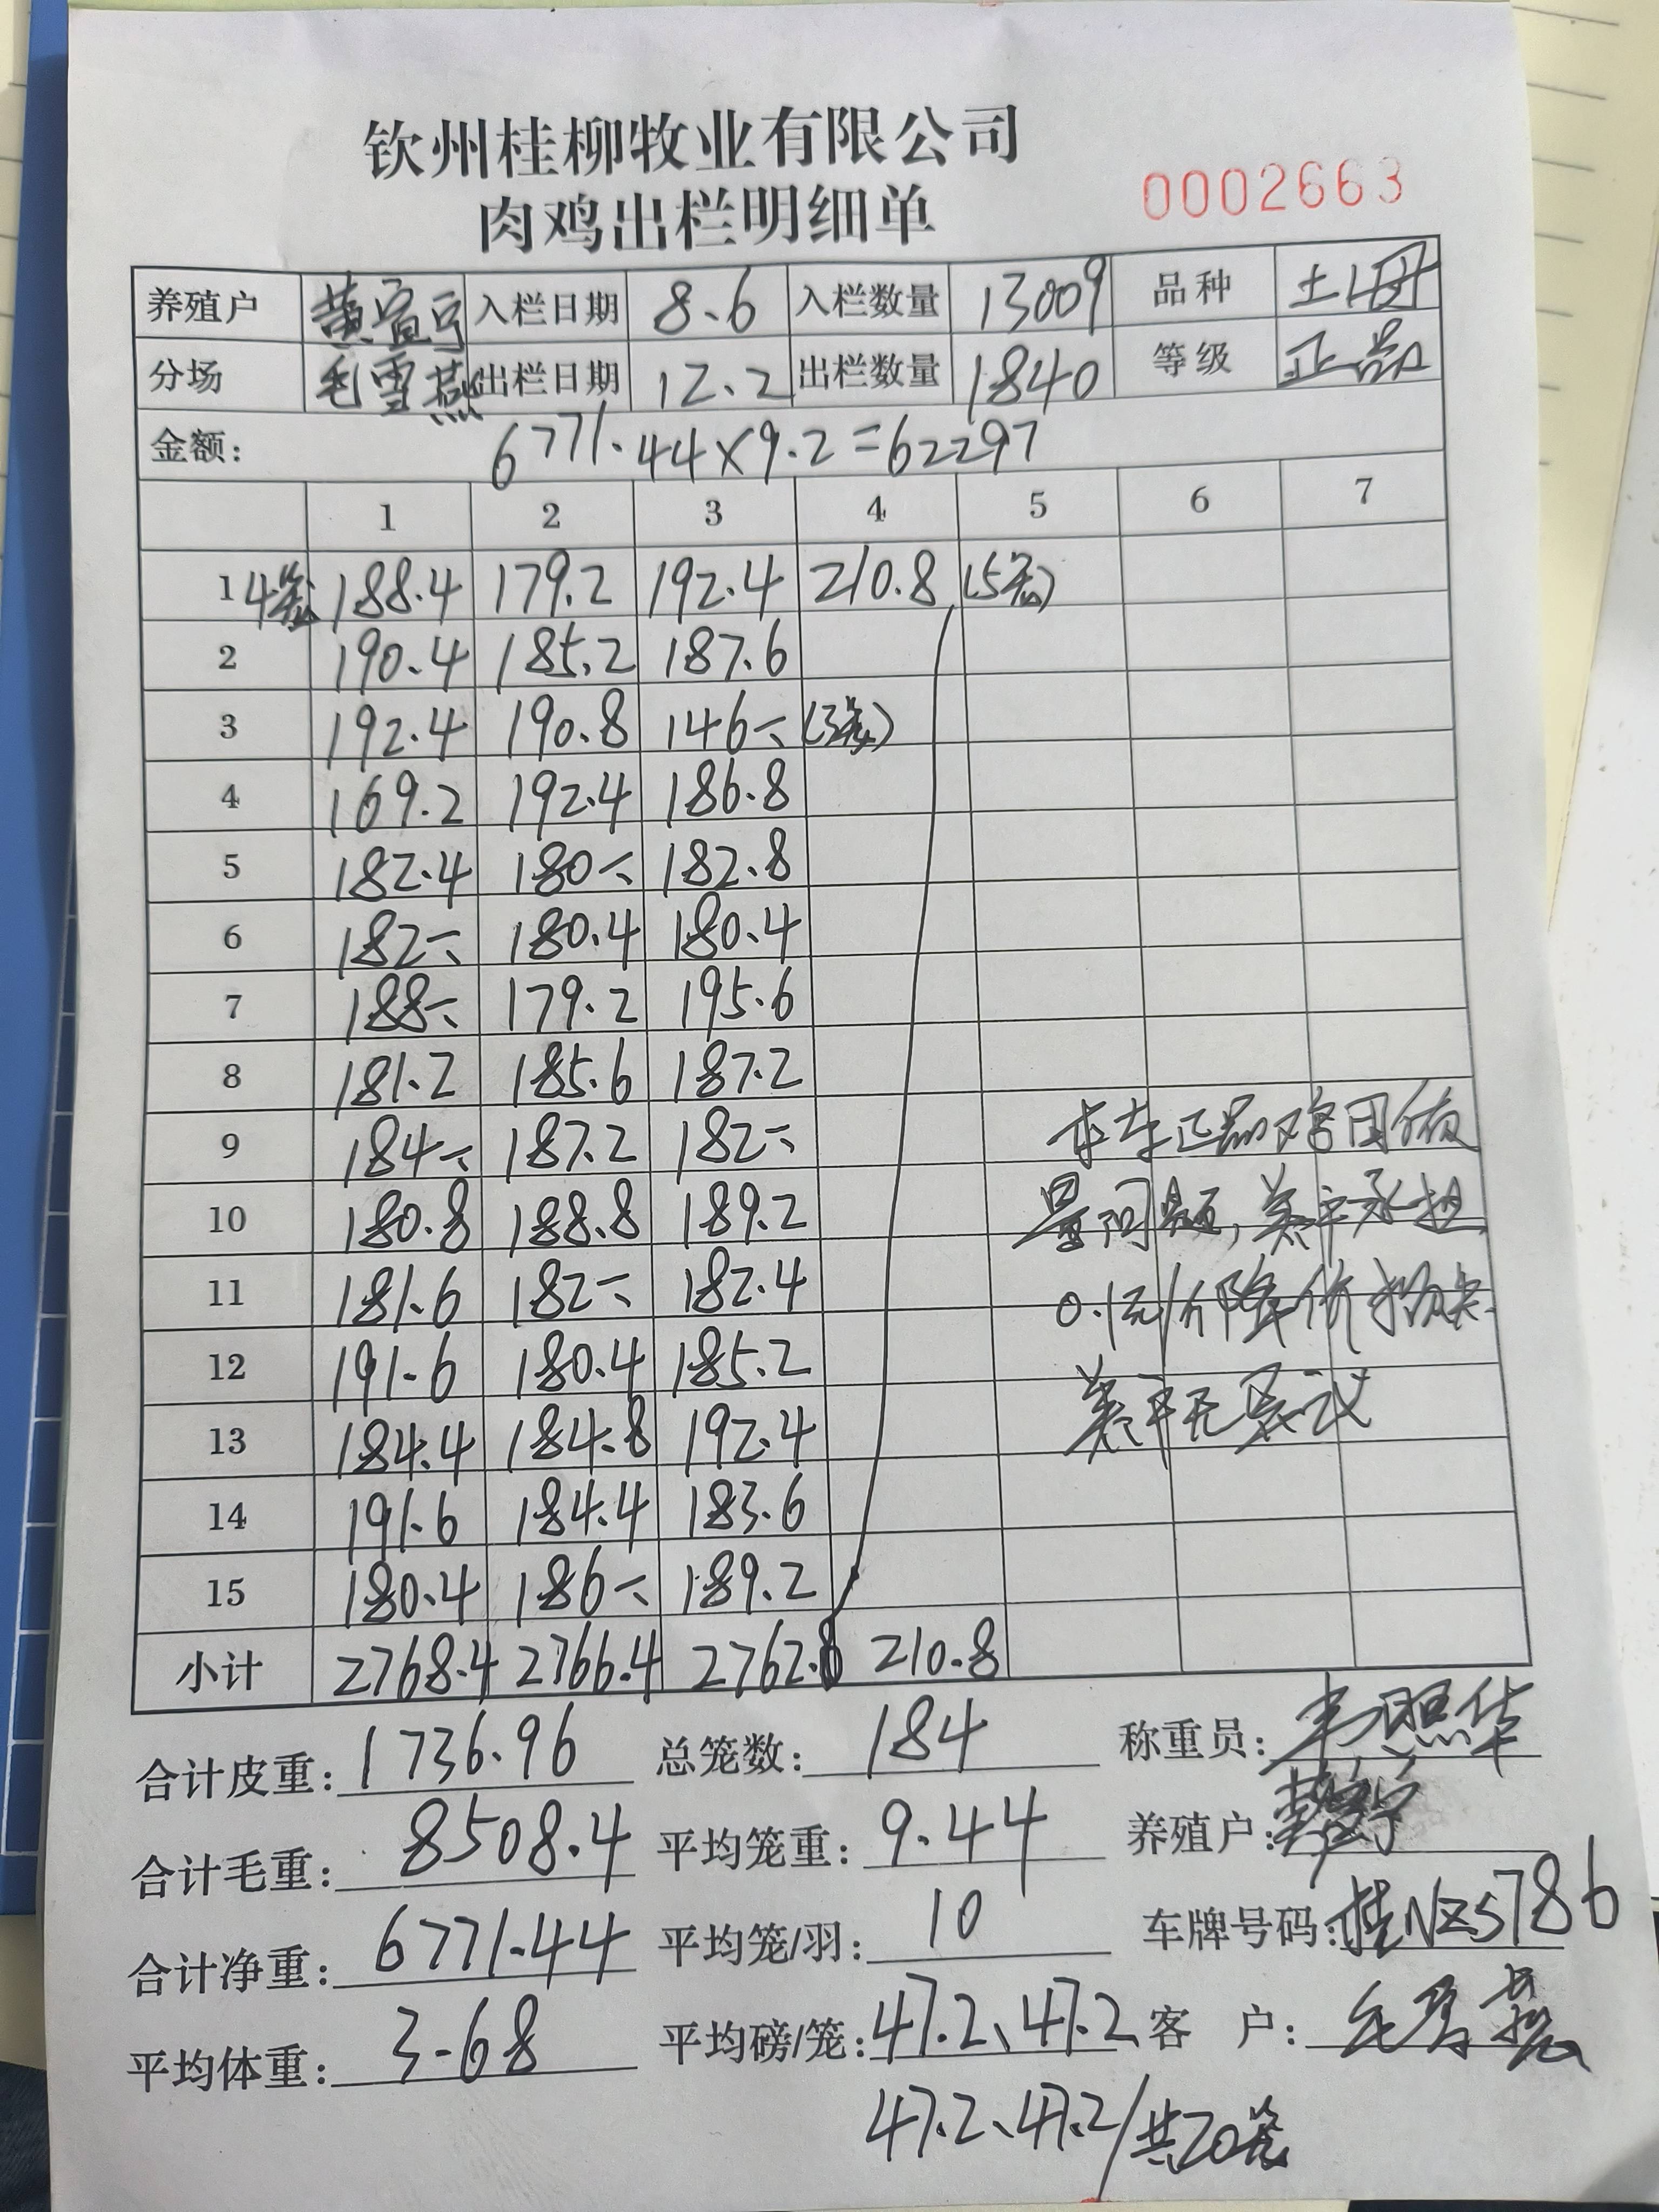 钦州桂柳牧业有限公司
肉鸡出栏明细单
0002663
养殖户 黄宣宁 入栏日期 8.6 入栏数量 13009 品种 土1母
分场 毛雪燕 出栏日期 12.2 出栏数量 1840 等级 正品
金额: 6771.44×9.2=62297
1 2 3 4 5 6 7
1 4笼 188.4 179.2 192.4 210.8 (5笼)
2 190.4 185.2 187.6
3 192.4 190.8 146-、 (3笼)
4 169.2 192.4 186.8
5 182.4 180-、 182.8
6 182-、 180.4 180.4
7 188-、 179.2 195.6
8 181.2 185.6 187.2
9 184-、 187.2 182-、
10 180.8 188.8 189.2
11 181.6 182-、 182.4
12 191.6 180.4 185.2
13 184.4 184.8 192.4
14 191.6 184.4 183.6
15 180.4 186-、 189.2
本车正品鸡因质
量问题,养户承担
0.1元/斤降价损失.
养户无异议
小计 2768.4 2766.4 2762.8 210.8
合计皮重: 1736.96 总笼数: 184 称重员: 韦照华
合计毛重: 8508.4 平均笼重: 9.44 养殖户:
合计净重: 6771.44 平均笼/羽: 10 车牌号码: 桂NZ5786
平均体重: 3.68 平均磅/笼: 47.2、47.2 客 户: 毛雪燕
47.2、47.2/共20笼